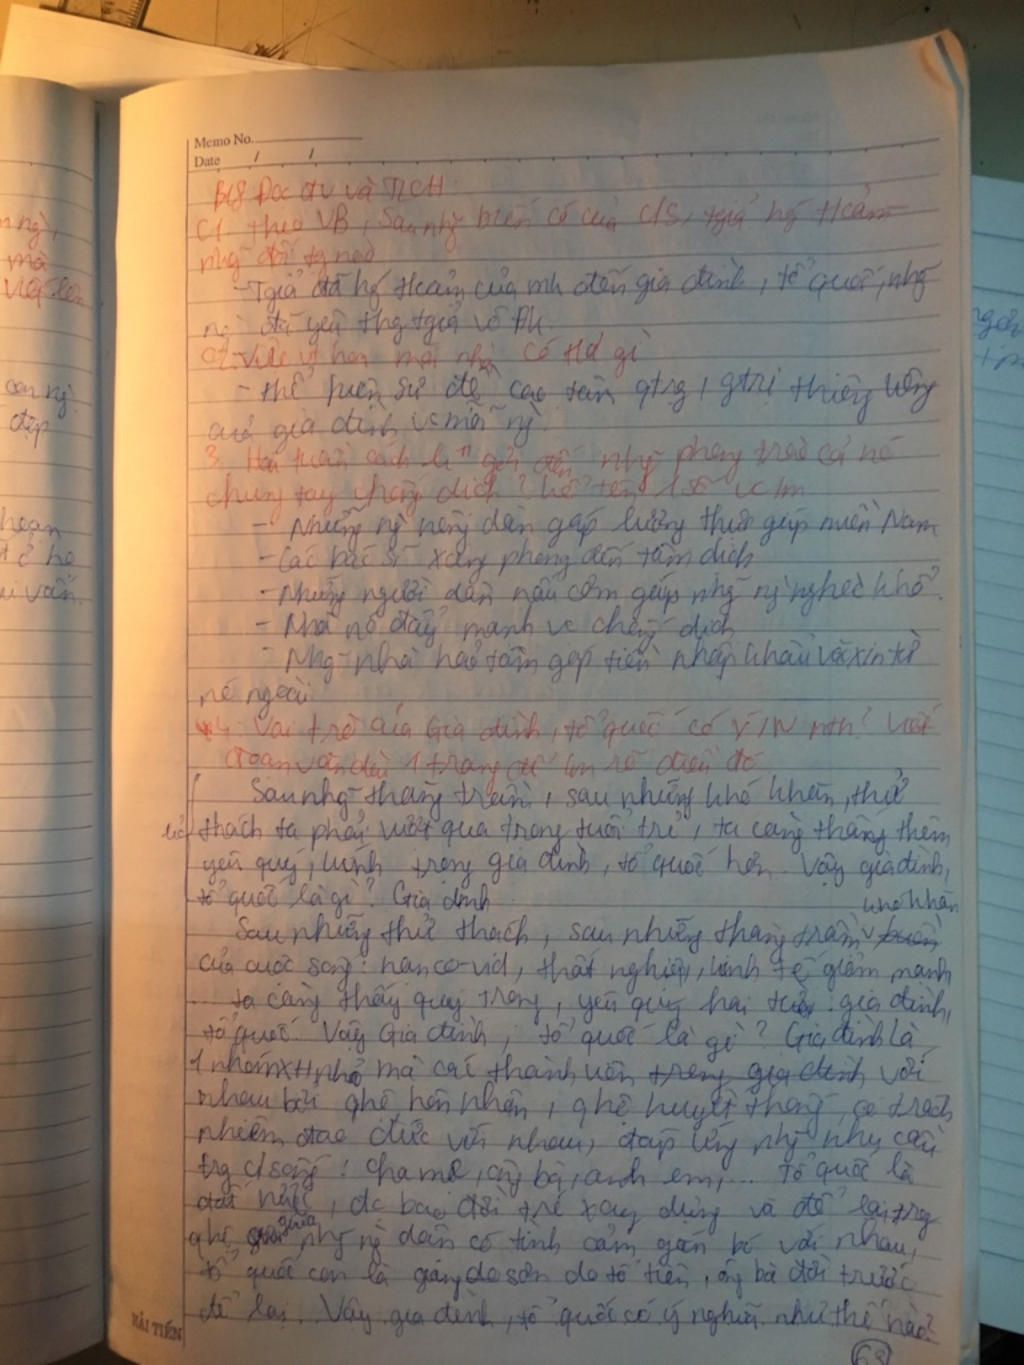 Memo No.
Date / /
Đọc đv và TLCH
C1. theo VB, sau nhg biến cố của c/s, tgiả hg tcảm
nhg đối tg nào
- Tgiả đã hg tcảm của mh đến gia đình, tổ quốc, nhg
ng đã yêu thg tgiả vô đk.
C2. Việc vt hoa mỗi có td gì
- thể hiện sự đề cao tầm qtrg, gtrị thiêng liêng
của gia đình vs mỗi ng.
3. gửi đến nhg phong trào cả nc
chung tay chống dịch? kể tên 1 số vc làm
- Những ng nông dân góp lương thực giúp miền Nam
- Các bác sĩ xung phong đến tâm dịch
- Những người dân nấu cơm giúp nhg ng nghèo khổ.
- Nhà nc đẩy mạnh vc chống dịch
- Nhg nhà hảo tâm góp tiền nhập khẩu vắcxin từ
nc ngoài
4. Vai trò của Gia đình, tổ quốc có ý nghĩa ntn? Viết
đoạn văn dài 1 trang để làm rõ điều đó
Sau nhg thăng trầm, sau những khó khăn, thử
thách ta phải vượt qua trong tuổi trẻ, ta càng thêm
yêu quý, kính trọng gia đình, tổ quốc hơn. Vậy gia đình,
tổ quốc là gì? Gia đình
khó khăn
Sau những thử thách, sau những thăng trầm buồn
của cuộc sống: nạn co-vid, thất nghiệp, kinh tế giảm mạnh
... ta càng thấy quý trọng, yêu quý hai tiếng: gia đình,
tổ quốc. Vậy Gia đình, tổ quốc là gì? Gia đình là
1 nhóm XH nhỏ mà các thành viên trong gia đình với
nhau bởi qhệ hôn nhân, qhệ huyết thống, có trách
nhiệm, đạo đức với nhau, đáp ứng nhg nhu cầu
trg c/sống: cha mẹ, ông bà, anh em,... tổ quốc là
đất nước, đc bao đời trc xây dựng và để lại, trg
qhệ giữa nhg ng dân có tình cảm gắn bó với nhau,
tổ quốc còn là giang sơn do tổ tiên, ông bà đời trước
để lại. Vậy gia đình, tổ quốc có ý nghĩa như thế nào?
HẢI TIẾN
63